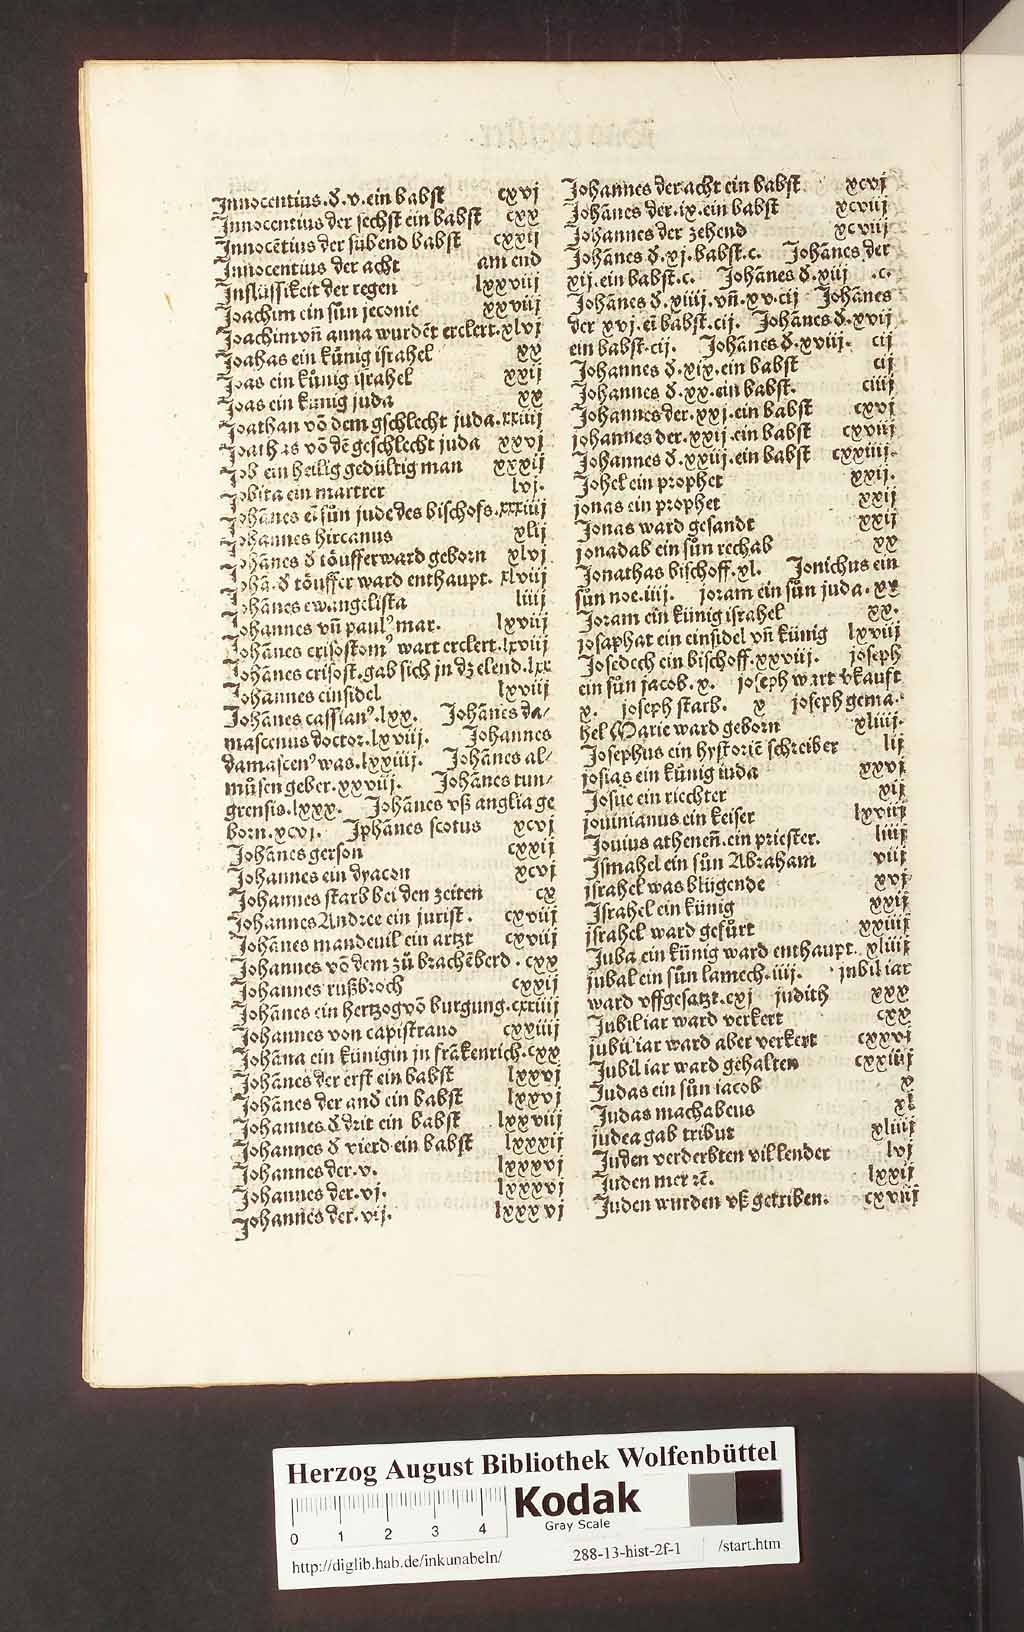 Innocentius.d̄.v.ein babst cxvj
Innocentius der sechst ein babst cxx
Innocētius der sübend babst cxxij
Innocentius der acht am end
Inflüssikeit der regen lxxviij
Joachim ein sůn jeconie xxviij
Joachim vn̄ anna wurdēt erclert.xlvj
Joahas ein kůnig israhel xx
Joas ein kůnig israhel xxij
Joas ein künig juda xx
Joathan vō dem gschlecht juda.xxiiij
Joathas vō dē geschlecht juda xxvj
Job ein heilig gedültig man xxxij
Jobita ein martrer lvj.
Johānes eī sůn jude des bischofs.xxxiiij
Johannes hircanus xlij
Johānes d̄ töufferward geborn xlvj
Johā.d̄ töuffer ward enthaupt. xlviij
Johānes ewangelista liiij
Johannes vn̄ paulꝰ mar. lxviij
Johānes crisostomꝰ wart erclert.lxviij
Johānes crisost.gab sich jn dz elend.lxx
Johannes einsidel lxviij
Johānes cassianꝰ.lxx. Johānes da/
mascenus doctor.lxviij. Johannes
damascenꝰ was.lxxiiij. Johānes al/
můsen geber.xxviij. Johānes tun/
grensis.lxxx. Johānes vß anglia ge
born.xcvj. Jphānes scotus xcvj
Johānes gerson cxxij
Johannes ein dyacon xcvj
Johannes starb bei den zeiten cx
Johannes Andree ein jurist. cxviij
Johānes mandeuil ein artzt cxviij
Johannes vō dem zů brachēberd. cxx
Johannes rußbroch cxxij
Johānes ein hertzog vō burgung.cxxiiij
Johannes von capistrano cxxiiij
Johāna ein künigin jn frākenrich.cxx
Johānes der erst ein babst lxxvj
Johānes der and̄ ein babst lxxvj
Johannes.d̄ drit ein babst lxxviij
Johannes d̄ vierd ein babst lxxxij
Johannes der.v. lxxxvj
Johannes der.vj. lxxxvj
Johannes der.vij. lxxxvj
Johannes der acht ein babst xcvj
Johānes der.ix.ein babst xcviij
Johannes der zehend xcviij
Johānes d̄.xj.babst.c. Johānes der
xij.ein babst.c. Johānes d̄.xiij .c.
Johānes d̄.xiiij.vn̄.xv.cij Johānes
der xvj.eī babst.cij. Johānes d̄.xvij
ein babst.cij. Johānes d̄.xviij. cij
Johannes d̄.xix.ein babst cij
Johannes d̄.xx.ein babst. ciiij
Johannes der.xxj.ein babst cxvj
johannes der.xxij.ein babst cxviij
Johannes d̄.xxiij.ein babst cxxiiij.
Johel ein prophet xxij.
jonas ein prophet xxij
Jonas ward gesandt xxij
jonadab ein sůn rechab xx
Jonathas bischoff.xl. Jonichus ein
sůn noe.iiij. joram ein sůn juda.xx
Joram ein künig israhel xx.
josaphat ein einsidel vn̄ künig lxviij
Josedech ein bischoff.xxviij. joseph
ein sůn jacob.x. joseph wart vkauft
x. joseph starb. x joseph gema-
hel Marie ward geborn xliiij.
Josephus ein hystoriē schreiber lij
josias ein kůnig iuda xxvj
Josüe ein riechter xij
jouinianus ein keiser lxviij
Jouius athenen̄.ein priester. liiij
Ismahel ein sůn Abraham viij
jsrahel was blügende xvj
Israhel ein künig xxij
jsrahel ward gefůrt xxiiij
Juba ein kůnig ward enthaupt. xliiij
jubal ein sůn lamech.iiij. jubil iar
ward vffgesatzt.cxj judith xxx
Jubil iar ward verkert cxx
jubil iar ward aber verkert cxxvj
Jubil iar ward gehalten cxxiiij
Judas ein sůn iacob x
Judas machabeus xl
judea gab tribut xliiij
Juden verderbten vil lender lvj
Juden mer rē. lxxij
Juden wurden vß getriben. cxviij
Herzog August Bibliothek Wolfenbüttel
Kodak
Gray Scale
0 1 2 3 4
http://diglib.hab.de/inkunabeln/ 288-13-hist-2f-1 /start.htm